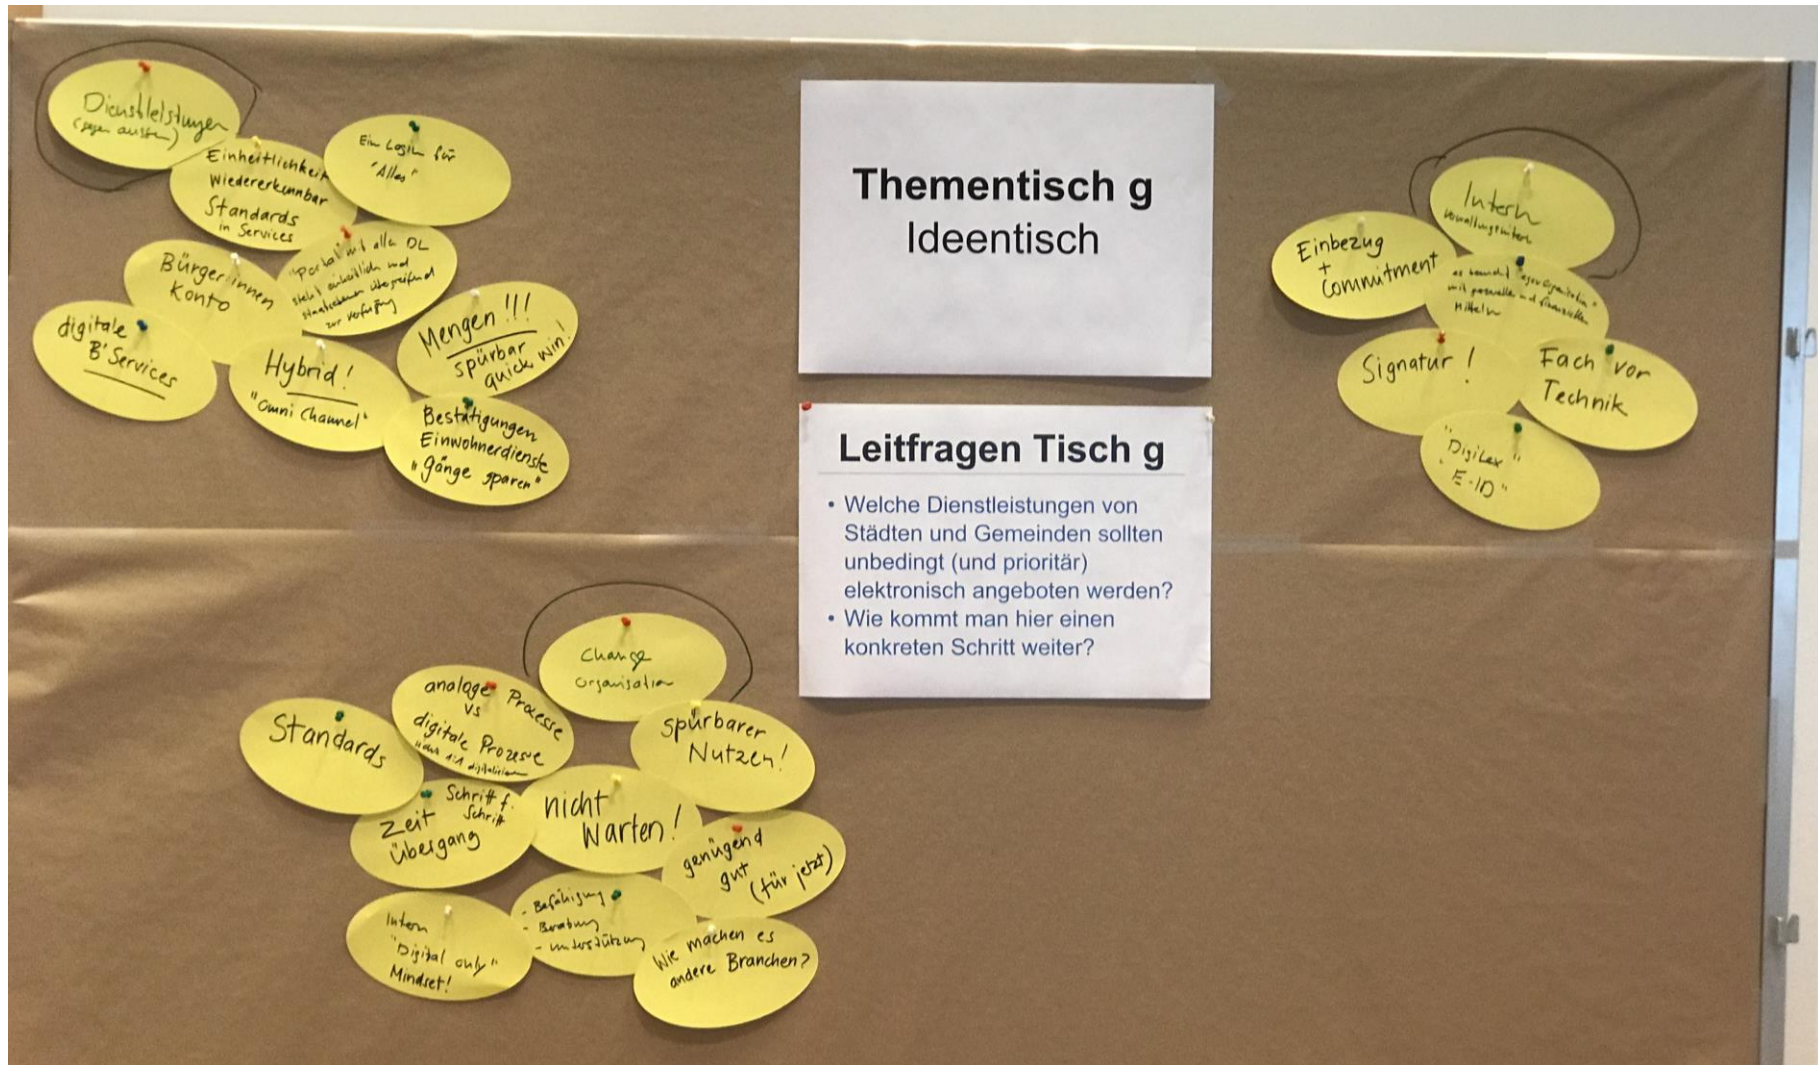 Dienstleistungen
(gegen aussen)
Einheitlichkeit
Wiedererkennbar
Standards
in Services
Ein Login für
"Alles"
Bürgerinnen
Konto
"Portal" mit allen DL
steht einheitlich und
staatsebenen übergreifend
zur Verfügung
digitale
B'Services
Hybrid!
"Omni Channel"
Mengen!!!
spürbar
quick win!
Bestätigungen
Einwohnerdienste
"Gänge sparen"
Thementisch g
Ideentisch
Leitfragen Tisch g
• Welche Dienstleistungen von
Städten und Gemeinden sollten
unbedingt (und prioritär)
elektronisch angeboten werden?
• Wie kommt man hier einen
konkreten Schritt weiter?
Intern
verwaltungsintern
Einbezug
+
Commitment
es braucht
mit personellen und finanziellen
Mitteln
Signatur!
Fach vor
Technik
"DigiLex"
"E-ID"
Change
Organisation
Standards
analoge Prozesse
vs
digitale Prozesse
digitalisieren
spürbarer
Nutzen!
Schritt f.
Schritt
Zeit
Übergang
nicht
Warten!
genügend
gut
(für jetzt)
Intern
"Digital only"
Mindset!
- Befähigung
- Beratung
- Unterstützung
Wie machen es
andere Branchen?